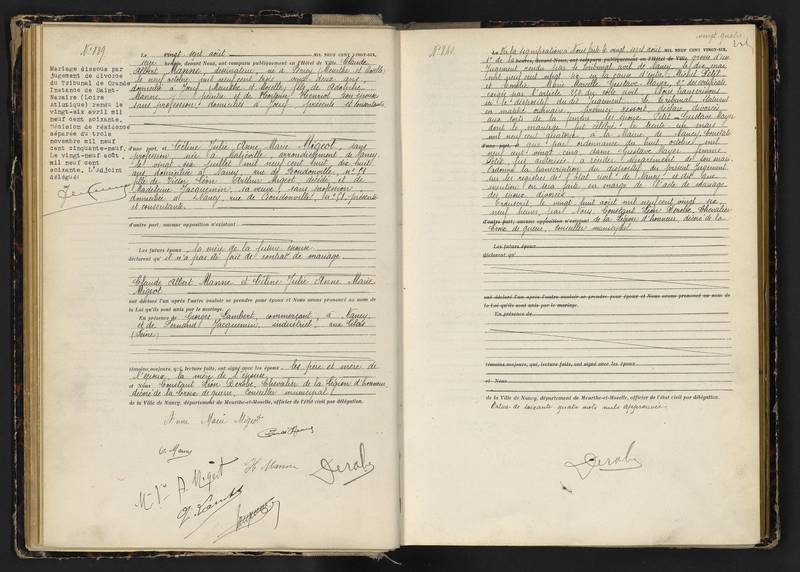 N° 139
Mariage dissous par
jugement de divorce
du Tribunal de Grande
Instance de Saint-
Nazaire (Loire
Atlantique) rendu le
vingt-six avril mil
neuf cent soixante,
Décision de résidence
séparée du trois
novembre mil neuf
cent cinquante-neuf.
Le vingt-neuf août
mil neuf cent
soixante. L'Adjoint
délégué:
Le vingt sept août MIL NEUF CENT VINGT-SIX,
heures, devant Nous, ont comparu publiquement en l'Hôtel de Ville, Claude
Albert Manne, dessinateur, né à Joeuf (Meurthe et Moselle)
le neuf octobre mil neuf cent trois, vingt deux ans,
domicilié à Joeuf, Meurthe et Moselle, fils de
Manne son épouse
sans profession, domiciliés à Joeuf, présents et consentants,
d'une part, et Céline Julie Anne Marie Migeot, sans
profession, née à arrondissement de Nancy,
le vingt six juillet mil neuf cent huit, dix huit
ans, domiciliée à Nancy, rue de Boudonville, n° 51
fille de Léon Migeot, décédé et de
Madeleine Jacquemin, sa veuve, sans profession,
domiciliée à Nancy, rue de Boudonville, n° 51, présente
et consentante.
d'autre part; aucune opposition n'existant
Les futurs époux, la mère de la future épouse
déclarent qu'il n'a pas été fait de contrat de mariage
Claude Albert Manne et Céline Julie Anne Marie
Migeot
ont déclaré l'un après l'autre vouloir se prendre pour époux et Nous avons prononcé au nom de
la Loi qu'ils sont unis par le mariage.
En présence de Georges Lambert, commerçant à Nancy
et de Fernand Jacquemin, industriel, aux Lilas
(Seine)
témoins majeurs, qui, lecture faite, ont signé avec les époux, les père et mère de
l'époux, la mère de l'épouse
et Nous Constant Léon Dérobe, Chevalier de la Légion d'honneur
décoré de la Croix de guerre, conseiller municipal
de la Ville de Nancy, département de Meurthe-et-Moselle, officier de l'état civil par délégation.
Anne Marie Migeot
H Manne
Derobe
A. Migeot
vingt quatre
N° 140
Vu la signification à Nous faite le vingt sept août MIL NEUF CENT VINGT-SIX,
heures, devant Nous, ont comparu publiquement en l'Hôtel de Ville,
jugement rendu par le tribunal civil de Nancy, le dix mai
mil neuf cent vingt six, en la cause d'entre Michel Petit
et Marie Gustave-Mayer,
exigés par l'article 252 du code civil. Nous transcrivons
ici le dispositif dudit jugement. Le Tribunal, statuant
en matière ordinaire, ressort, déclare divorcés
aux torts de la femme les époux Petit-Gustave Mayer
dont le mariage fut célébré le trente un mars
mil neuf cent à la Mairie de Nancy.
d'une part, que par ordonnance du huit octobre mil
neuf cent vingt cinq, dame Mayer, femme
Petit, fut autorisée à résider séparément de son mari.
Ordonne la transcription du dispositif du présent jugement
sur les registres de l'état civil de Nancy, et dit que
mention en sera faite en marge de l'acte de mariage
des époux divorcés.
Transcrit, le vingt huit août mil neuf cent vingt six,
neuf heures, par Nous, Constant Léon Dérobe, Chevalier
d'autre part; aucune opposition n'existant de la Légion d'honneur, décoré de la
Croix de guerre, conseiller municipal
Les futurs époux
déclarent qu'
ont déclaré l'un après l'autre vouloir se prendre pour époux et Nous avons prononcé au nom de
la Loi qu'ils sont unis par le mariage.
En présence de
témoins majeurs, qui, lecture faite, ont signé avec les époux
et Nous
de la Ville de Nancy, département de Meurthe-et-Moselle, officier de l'état civil par délégation.
de soixante quatre mots nuls approuvée.
Derobe